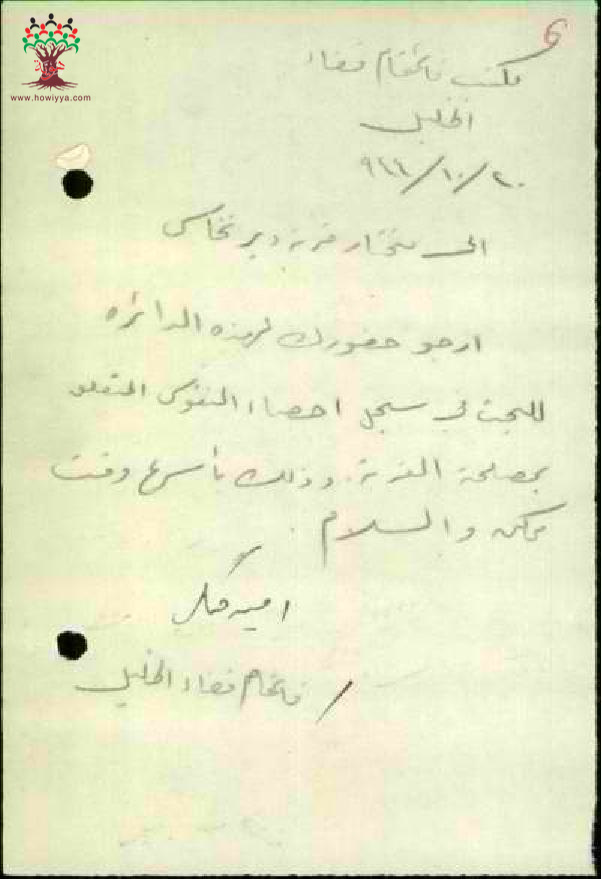 6
www.howiyya.com
مكتب قائمقام قضاء
الخليل
٢٠/١٠/٩٤٤
الى مختار قرية دير نخاس
ارجو حضورك لهذه الدائره
للبحث في سجل احصاء النفوس المتعلق
بمصلحة القرية وذلك بأسرع وقت
ممكن والسلام.
قائمقام قضاء الخليل